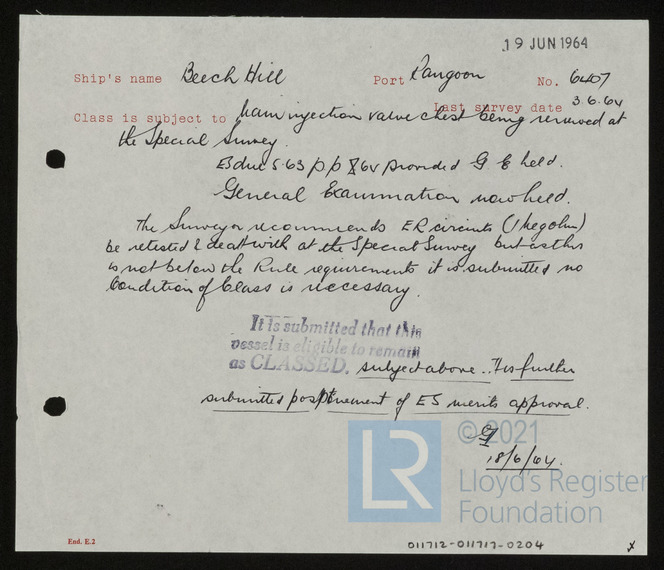 19 JUN 1964
Ship's name Beech Hill Port Rangoon No. 6407
Last survey date 3.6.64
Class is subject to Main injection valve chest being renewed at
the Special Survey.
ES due 5.63 p.p 8.64 provided G E held.
General Examination now held.
The Surveyor recommends ER circuits (1 Megohm)
be retested & dealt with at the Special Survey but as this
is not below the Rule requirements it is submitted no
Condition of Class is necessary.
It is submitted that this
vessel is eligible to remain
as CLASSED. subject above. It is further
submitted postponement of ES merits approval.
18/6/64.
© 2021
LR
Lloyd's Register
Foundation
End. E.2
011712-011717-0204